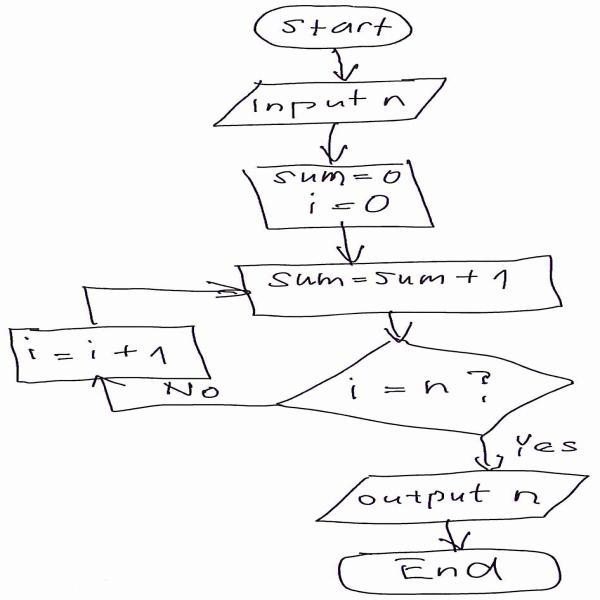 Start
input n
sum = 0
i = 0
sum = sum + 1
i = i + 1
i = n ?
No
Yes
output n
End